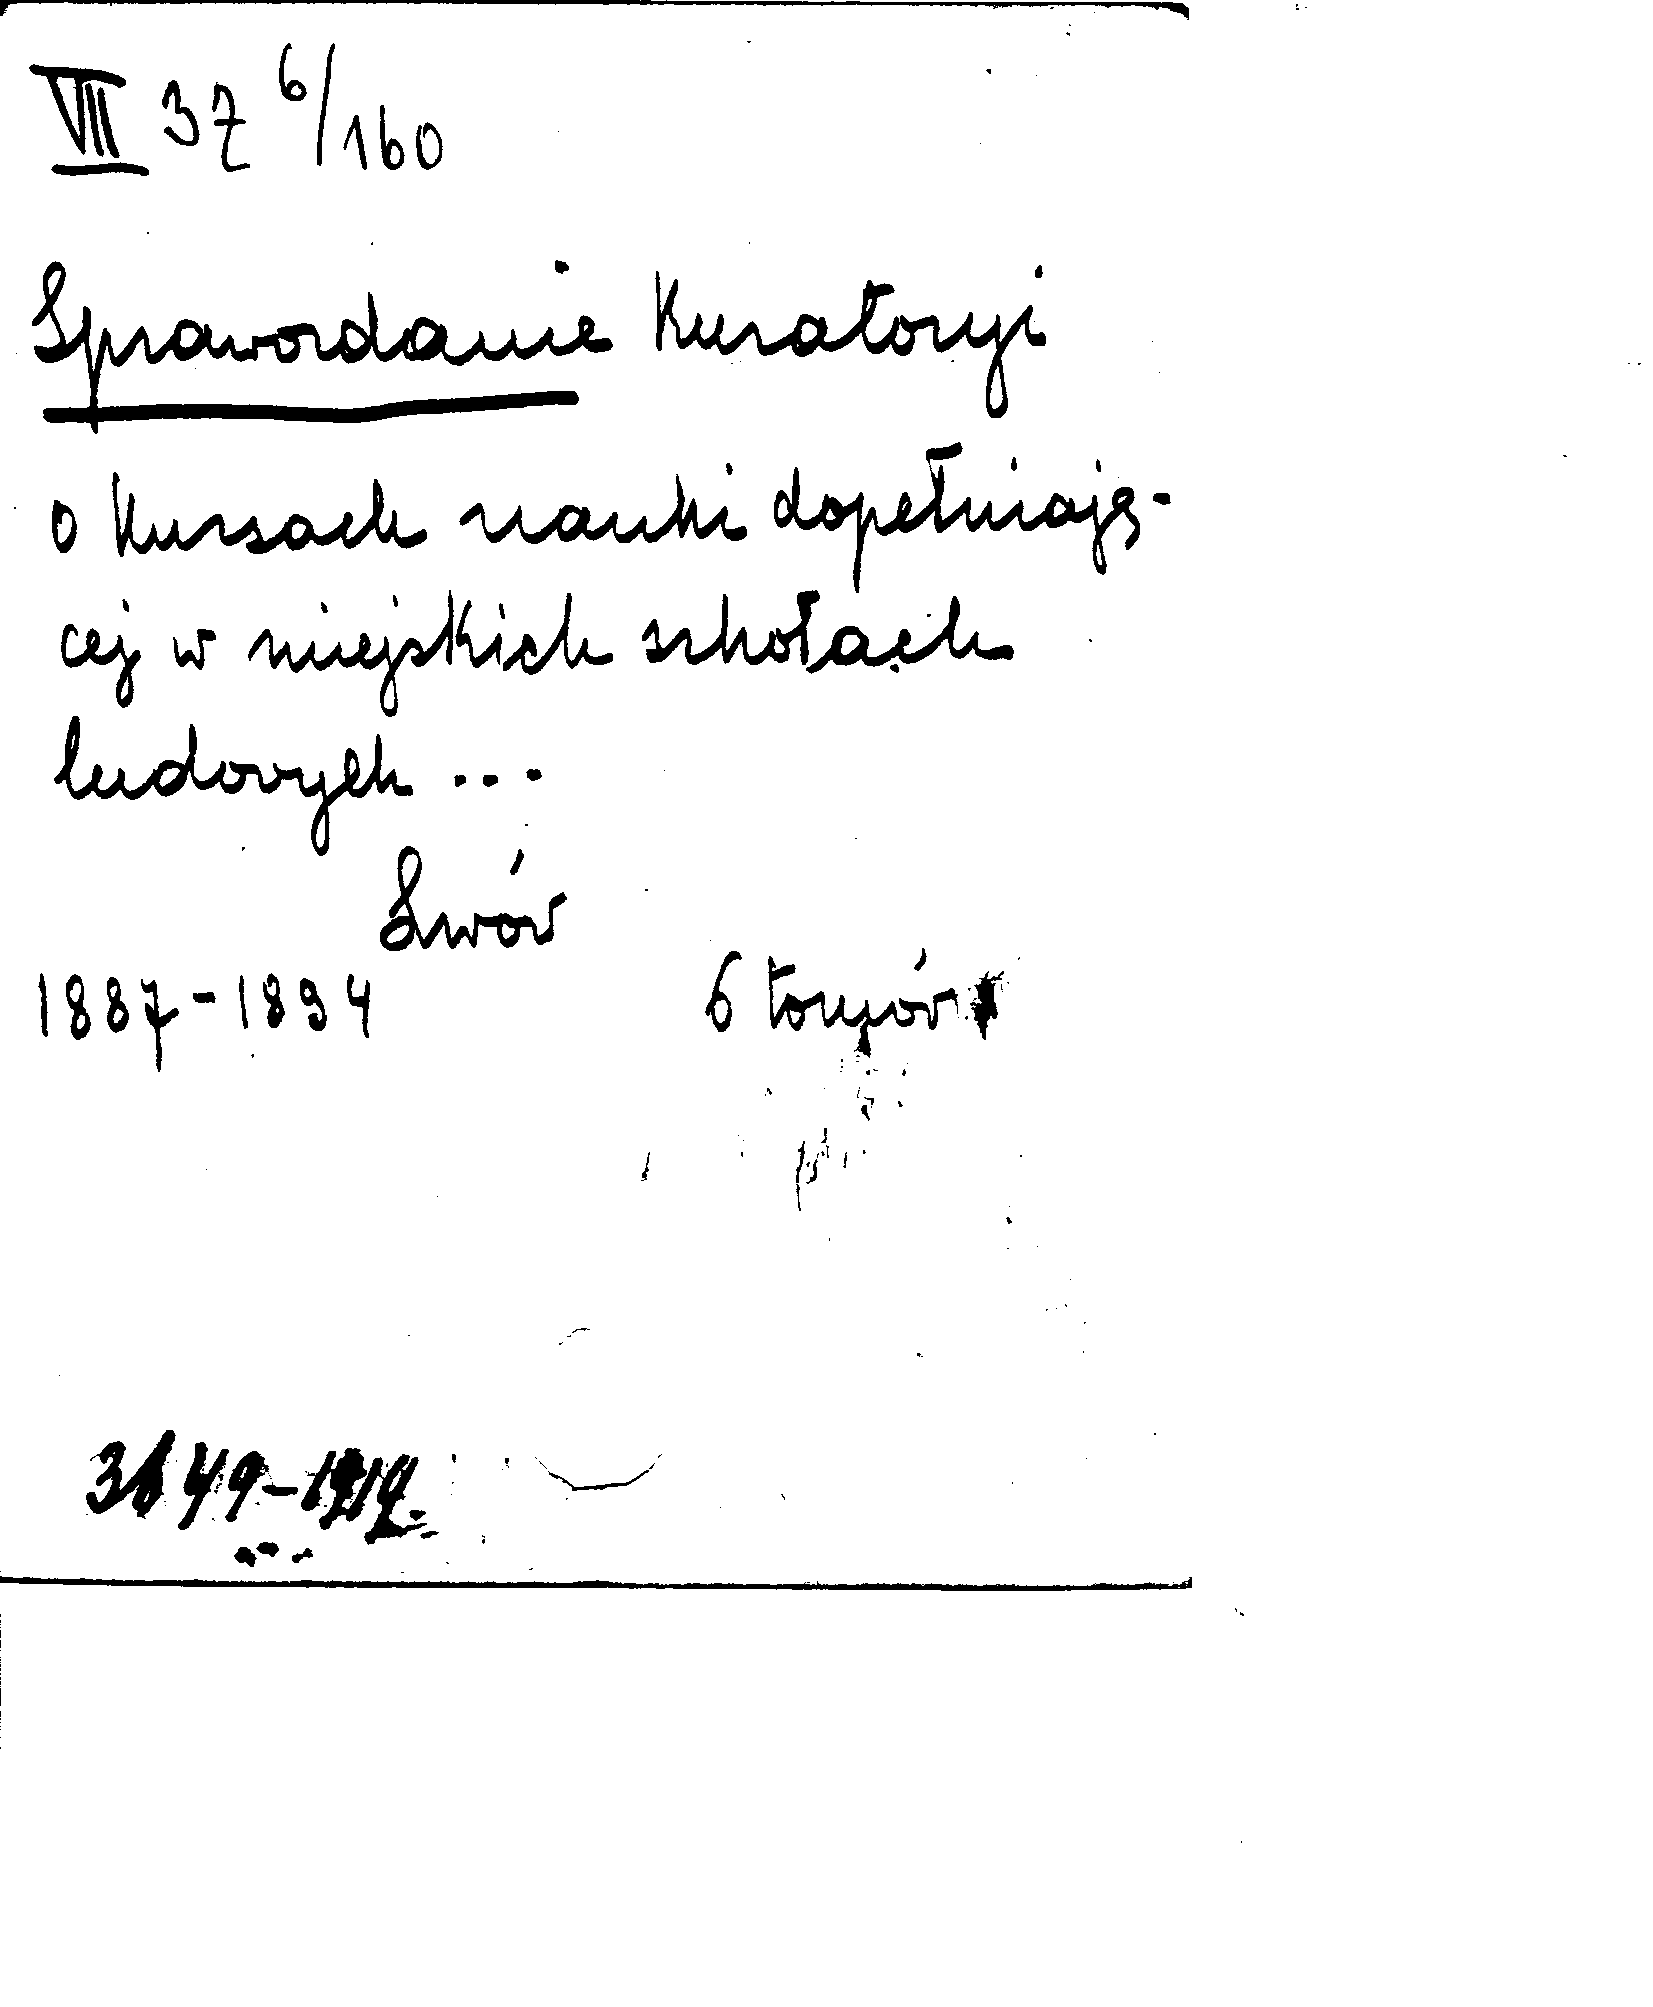 VII 37 6/160
Sprawozdanie Kuratoryi
o kursach nauki dopełniają-
cej w miejskich szkołach
ludowych ...
Lwów
1887-1894
6 tomów